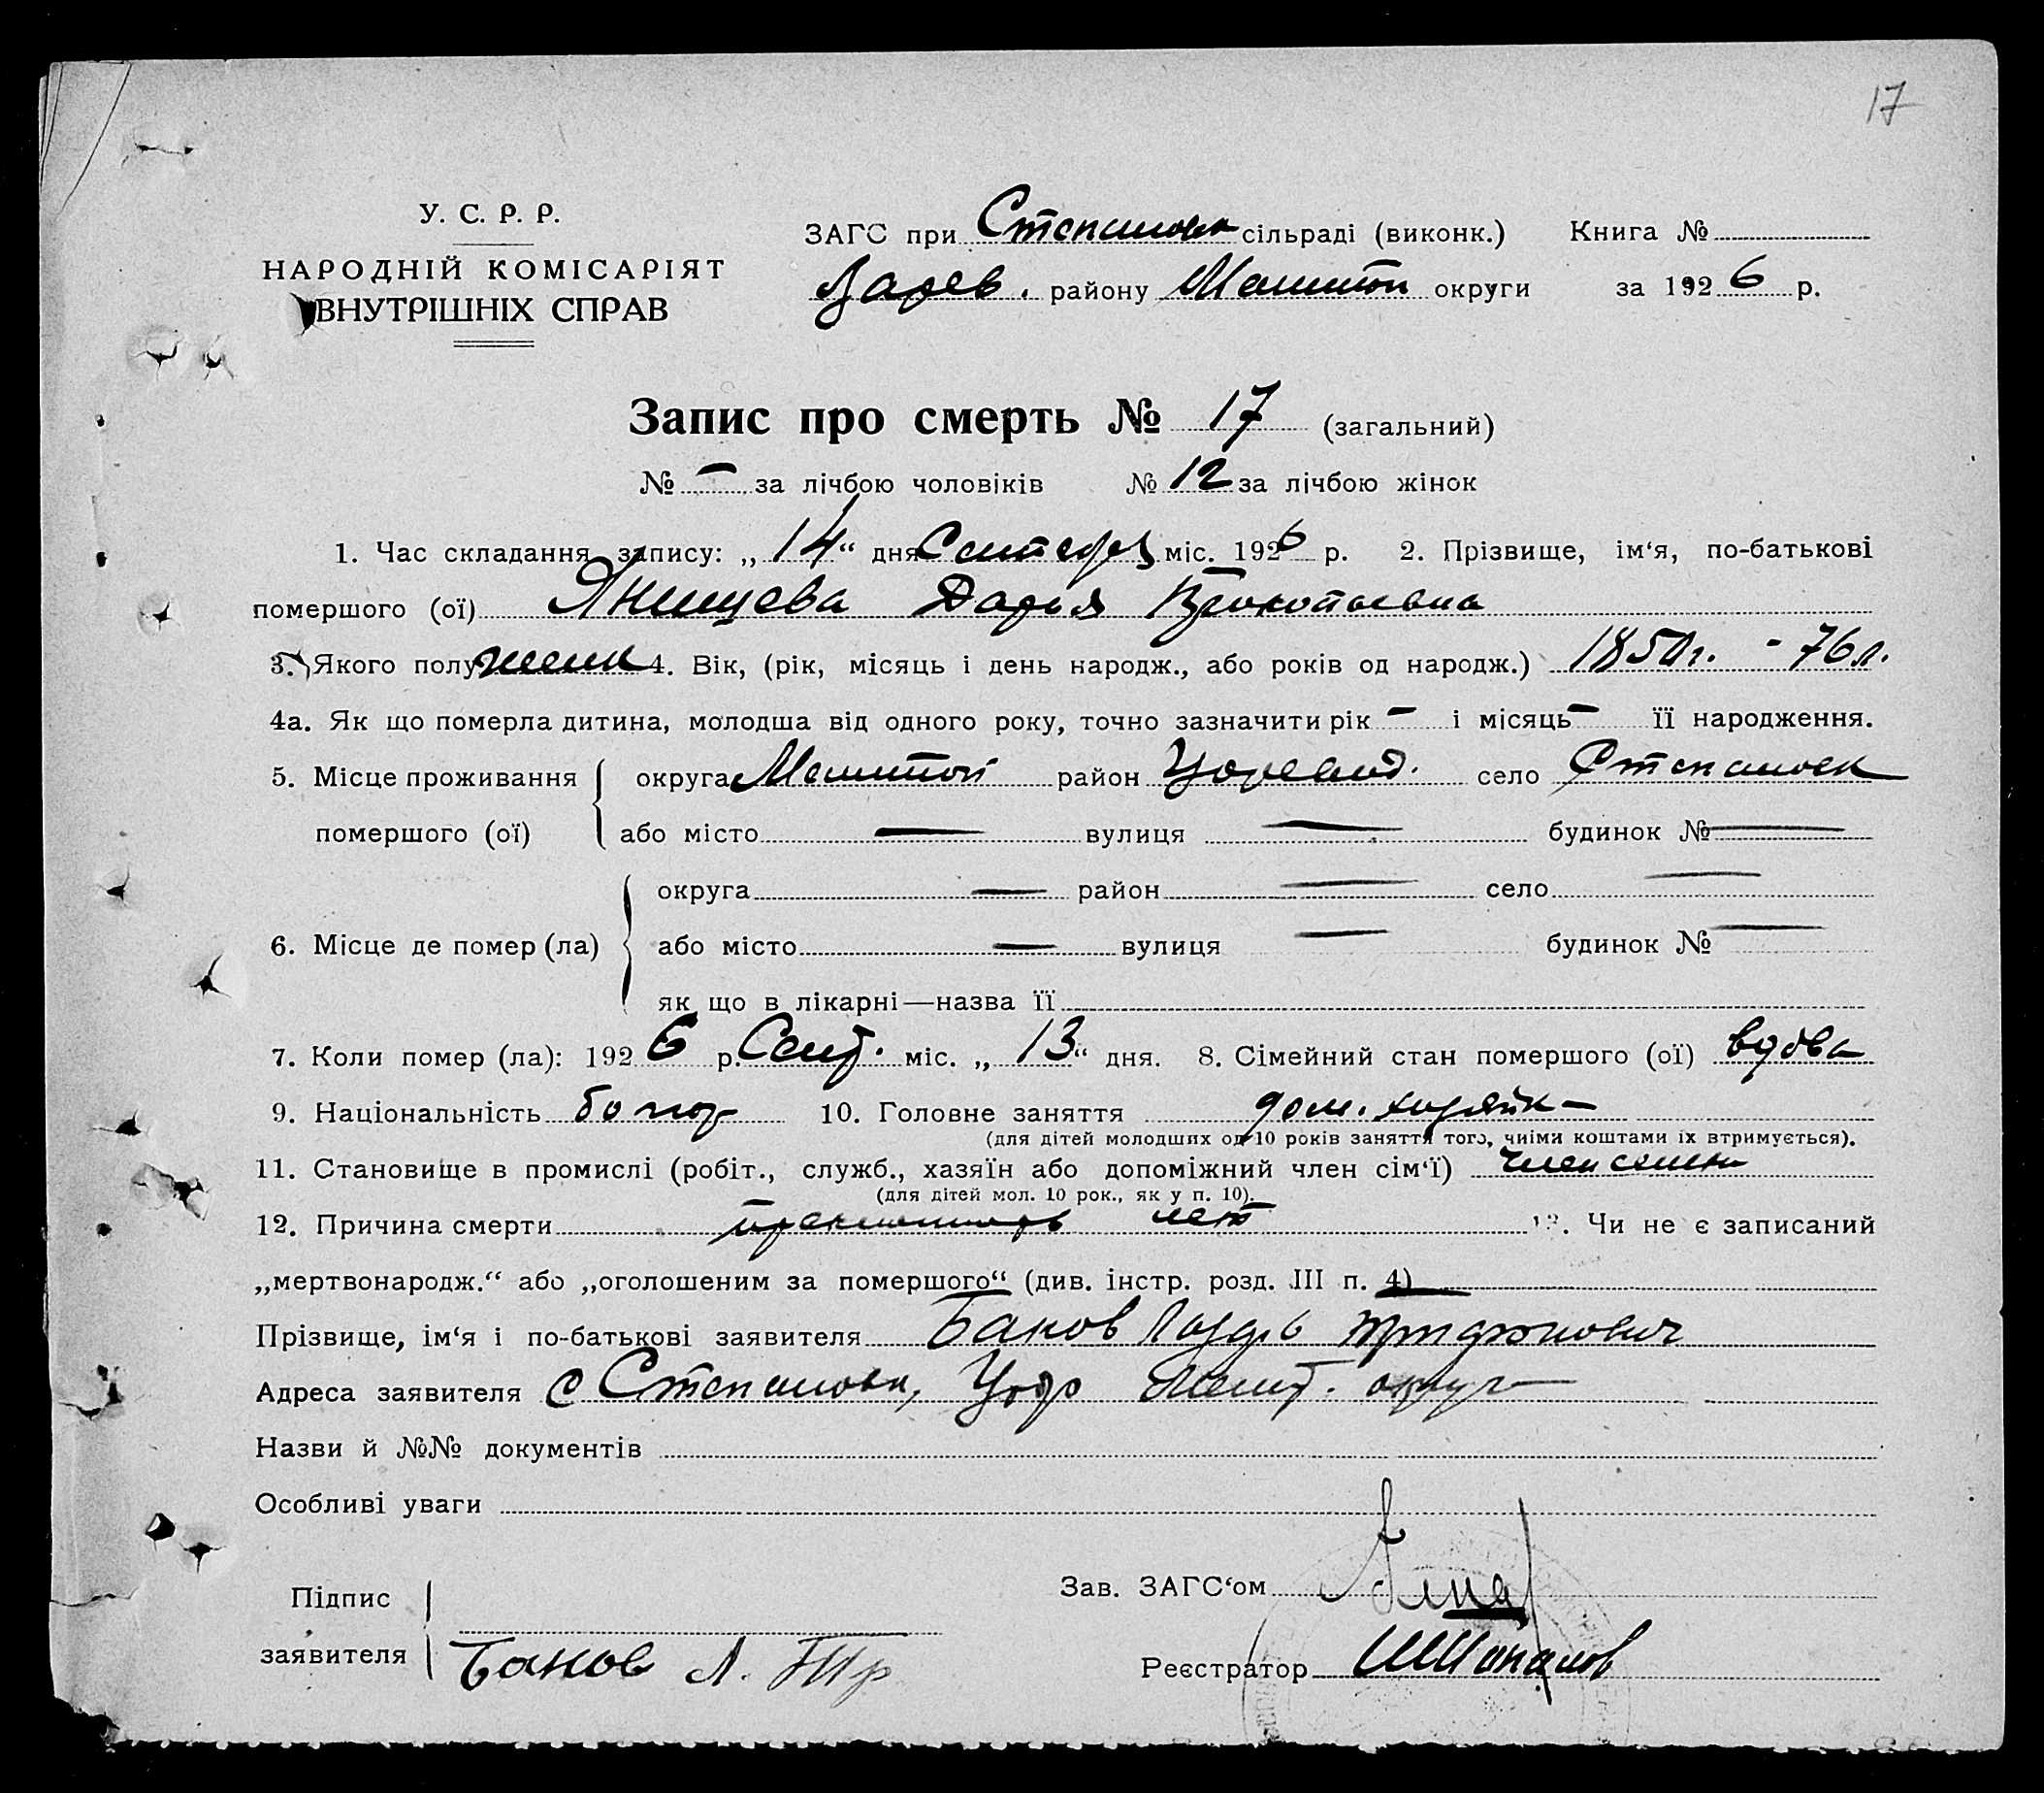 17
У. С. Р. Р.
НАРОДНІЙ КОМІСАРІЯТ
ВНУТРІШНІХ СПРАВ
ЗАГС при Степановк сільраді (виконк.) Книга №
району округи за 1926 р.
Запис про смерть № 17 (загальний)
№ — за лічбою чоловіків № 12 за лічбою жінок
1. Час складання запису: „ 14 “ дня міс. 1926 р. 2. Прізвище, ім‘я, по-батькові
помершого (ої) Дарья Прокопьевна
3. Якого полу женск 4. Вік, (рік, місяць і день народж., або років од народж.) 1850 г. - 76 л.
4а. Як що померла дитина, молодша від одного року, точно зазначити рік — і місяць — її народження.
5. Місце проживання округа район село Степановк
помершого (ої) або місто — вулиця — будинок № —
округа — район — село —
6. Місце де помер (ла) або місто — вулиця — будинок № —
як що в лікарні—назва її
7. Коли помер (ла): 1926 р. Сент. міс. „ 13 “ дня. 8. Сімейний стан помершого (ої) вдова
9. Національність болгар 10. Головне заняття дом. хозяйк
(для дітей молодших од 10 років заняття того, чиїми коштами їх втримується).
11. Становище в промислі (робіт., служб., хазяїн або допоміжний член сім‘ї) член семьи
(для дітей мол. 10 рок., як у п. 10).
12. Причина смерти лет 13. Чи не є записаний
„мертвонародж.“ або „оголошеним за помершого“ (див. інстр. розд. III п. 4) —
Прізвище, ім‘я і по-батькові заявителя Банов Трифонович
Адреса заявителя с Степановк, округ
Назви й №№ документів
Особливі уваги
Підпис
заявителя
Банов Л. Тр
Зав. ЗАГС‘ом
Реєстратор